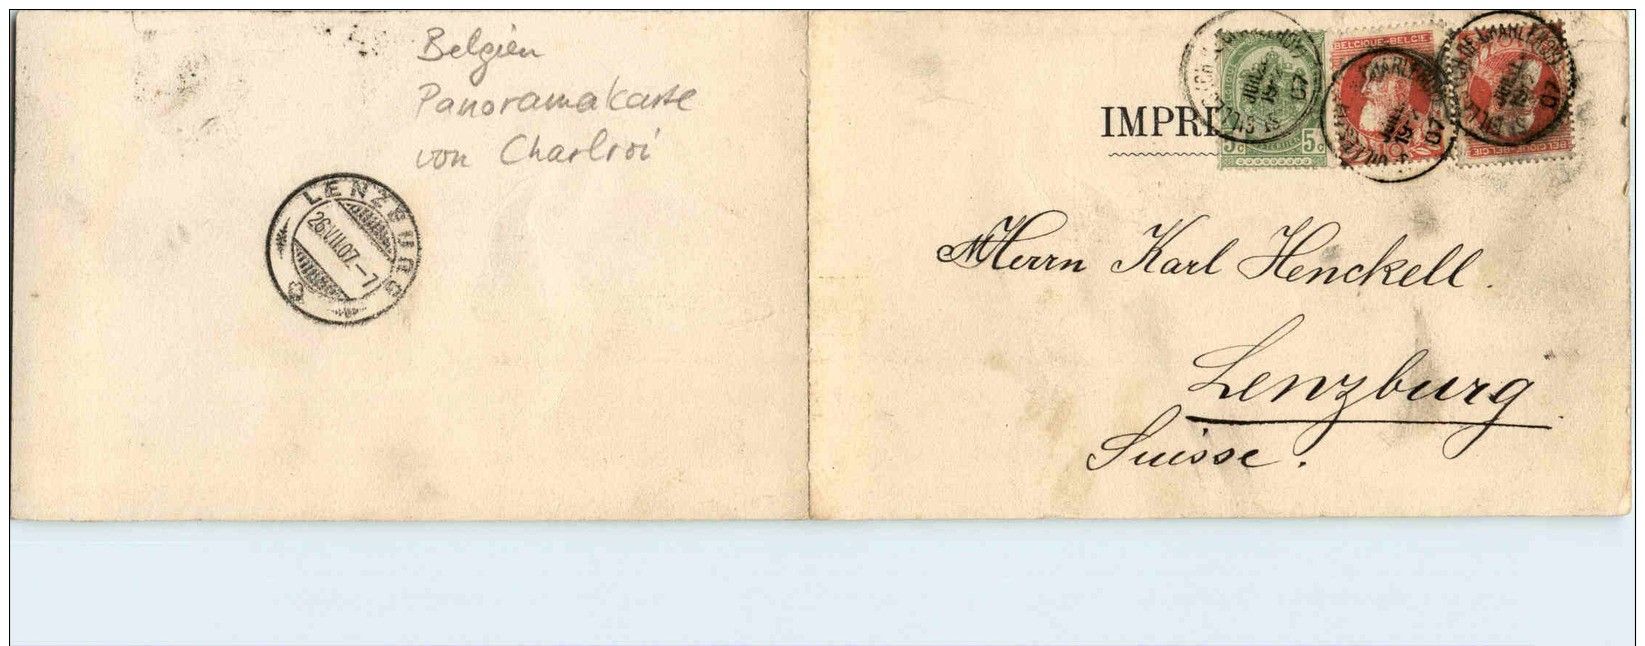 Belgien
Panoramakarte
von Charlroi
LENZBURG
26.VII.07.–7
IMPRI
5 5
BELGIQUE-BELGIE
07
07
07
Herrn Karl Henckell.
Lenzburg
Suisse.